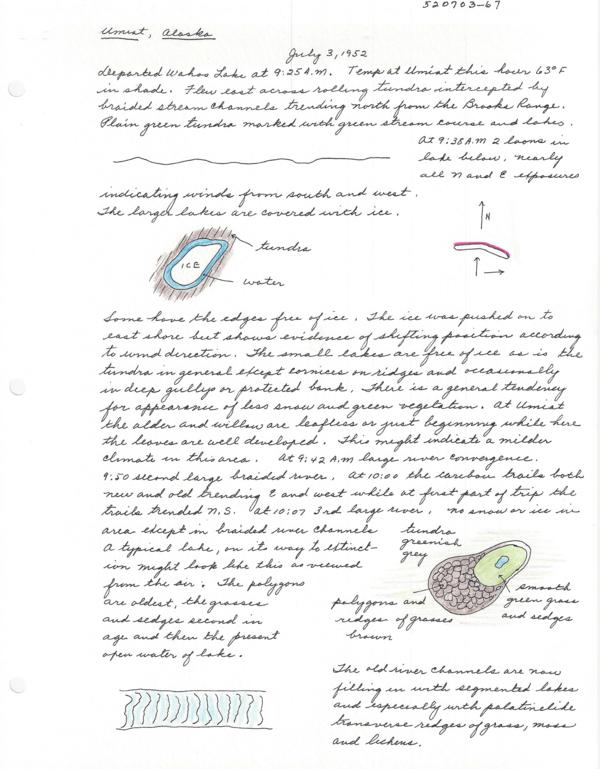 520703-67
Umiat, Alaska
July 3, 1952
Departed Wahoo Lake at 9:25 A.M. Temp at Umiat this hour 63°F
in shade. Flew east across rolling tundra intercepted by
braided stream channels trending north from the Brooks Range.
Plain green tundra marked with green stream course and lakes.
At 9:38 A.M 2 loons in
lake below, nearly
all N and E exposures
indicating winds from south and west.
The larger lakes are covered with ice.
N
tundra
ICE
water
Some have the edges free of ice. The ice was pushed on to
east shore but shows evidence of shifting position according
to wind direction. The small lakes are free of ice as is the
tundra in general except cornices on ridges and occasionally
in deep gullys or protected bank. There is a general tendency
for appearance of less snow and green vegetation. At Umiat
the alder and willow are leafless or just beginning while here
the leaves are well developed. This might indicate a milder
climate in this area. At 9:42 A.M large river convergence.
9:50 second large braided river. At 10:00 the caribou trails both
new and old trending E and west while at first part of trip the
trails trended N.S. At 10:07 3rd large river, no snow or ice in
area except in braided river channels
A typical lake, on it way to extinct-
ion might look like this as viewed
from the air. The polygons
are oldest, the grasses
and sedges second in
age and then the present
open water of lake.
tundra
greenish
grey
smooth
green grass
and sedges
polygons and
redges of grasses
brown
The old river channels are now
filling in with segmented lakes
and especially with
transverse redges of grass, moss
and lichens.